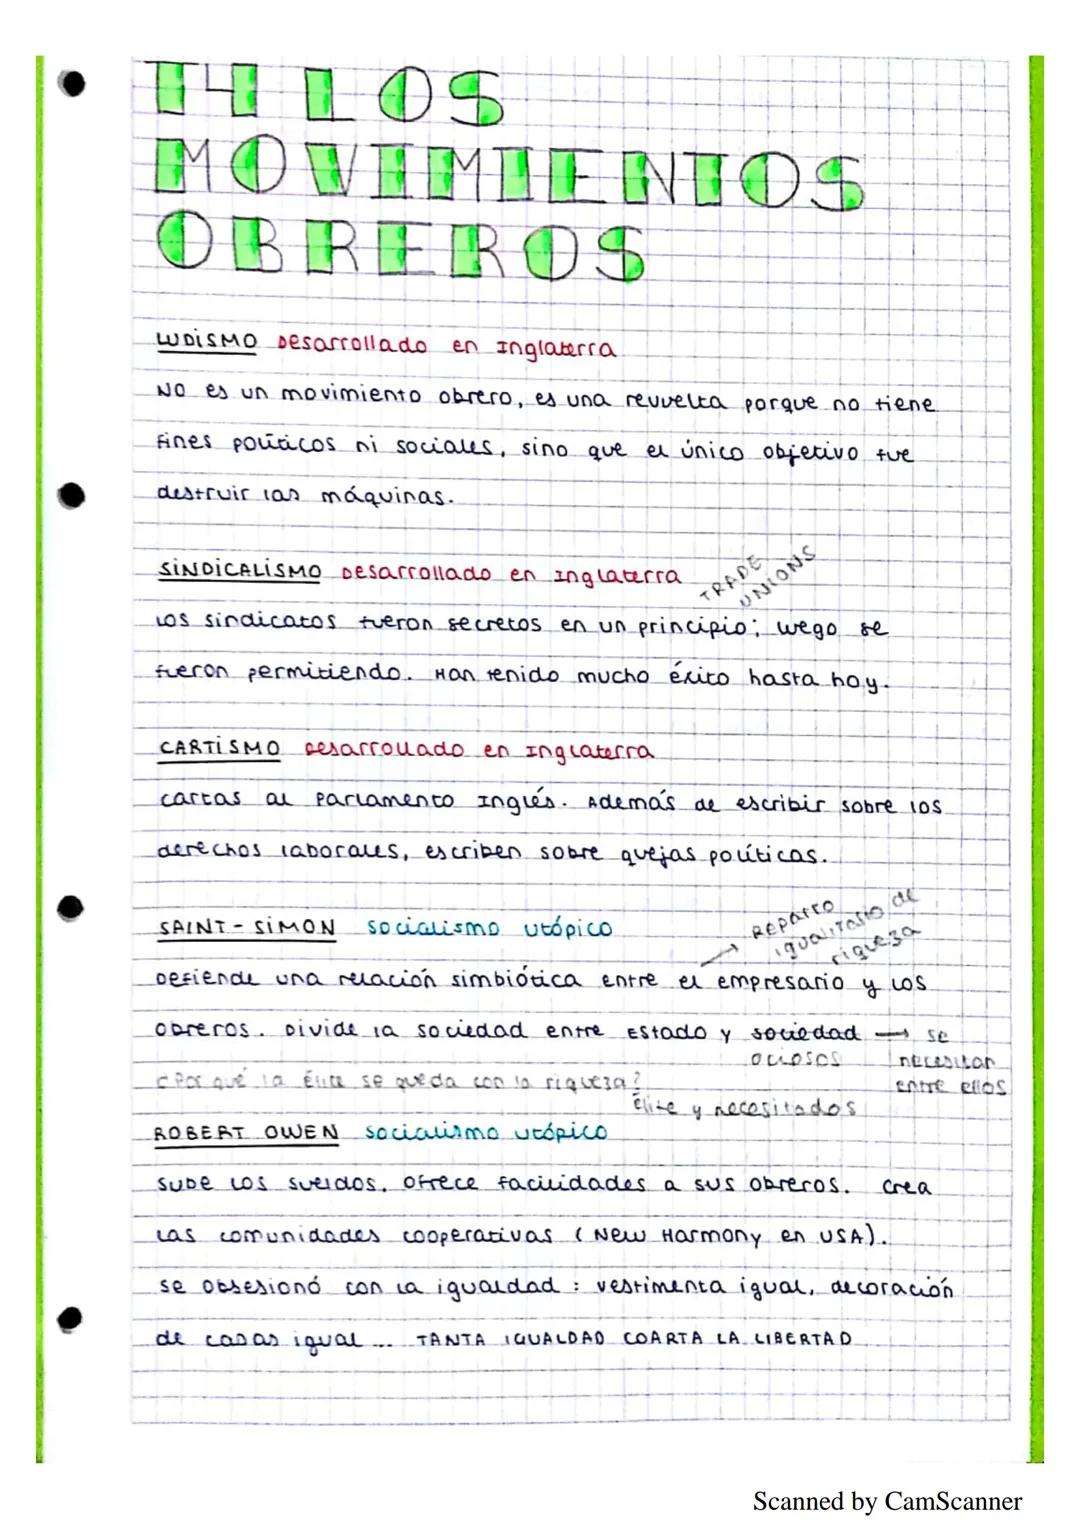 T4 LOS
MOVIMIENTOS
OBREROS
LUDISMO Desarrollado en Inglaterra
NO es un movimiento obrero, es una revuelta porque no tiene
fines políticos ni sociales, sino que el único objetivo fue
destruir las máquinas.
SINDICALISMO Desarrollado en Inglaterra
TRADE
UNIONS
Los sindicatos fueron secretos en un principio; luego se
fueron permitiendo. Han tenido mucho éxito hasta hoy.
CARTISMO Desarrollado en Inglaterra
cartas al Parlamento Inglés. Además de escribir sobre los
derechos laborales, escriben sobre quejas políticas.
SAINT-SIMON socialismo utópico
→ Reparto
igualitario de
riqueza
Defiende una relación simbiótica entre el empresario y los
obreros. Divide la sociedad entre Estado y sociedad → se
ociosos necesitan
¿Por qué la Élite se queda con la riqueza? entre ellos
Élite y necesitados
ROBERT OWEN socialismo utópico
Sube los sueldos, ofrece facilidades a sus obreros. Crea
las comunidades cooperativas (New Harmony en USA).
se obsesionó con la igualdad: vestimenta igual, decoración
de casas igual... TANTA IGUALDAD COARTA LA LIBERTAD
Scanned by CamScanner